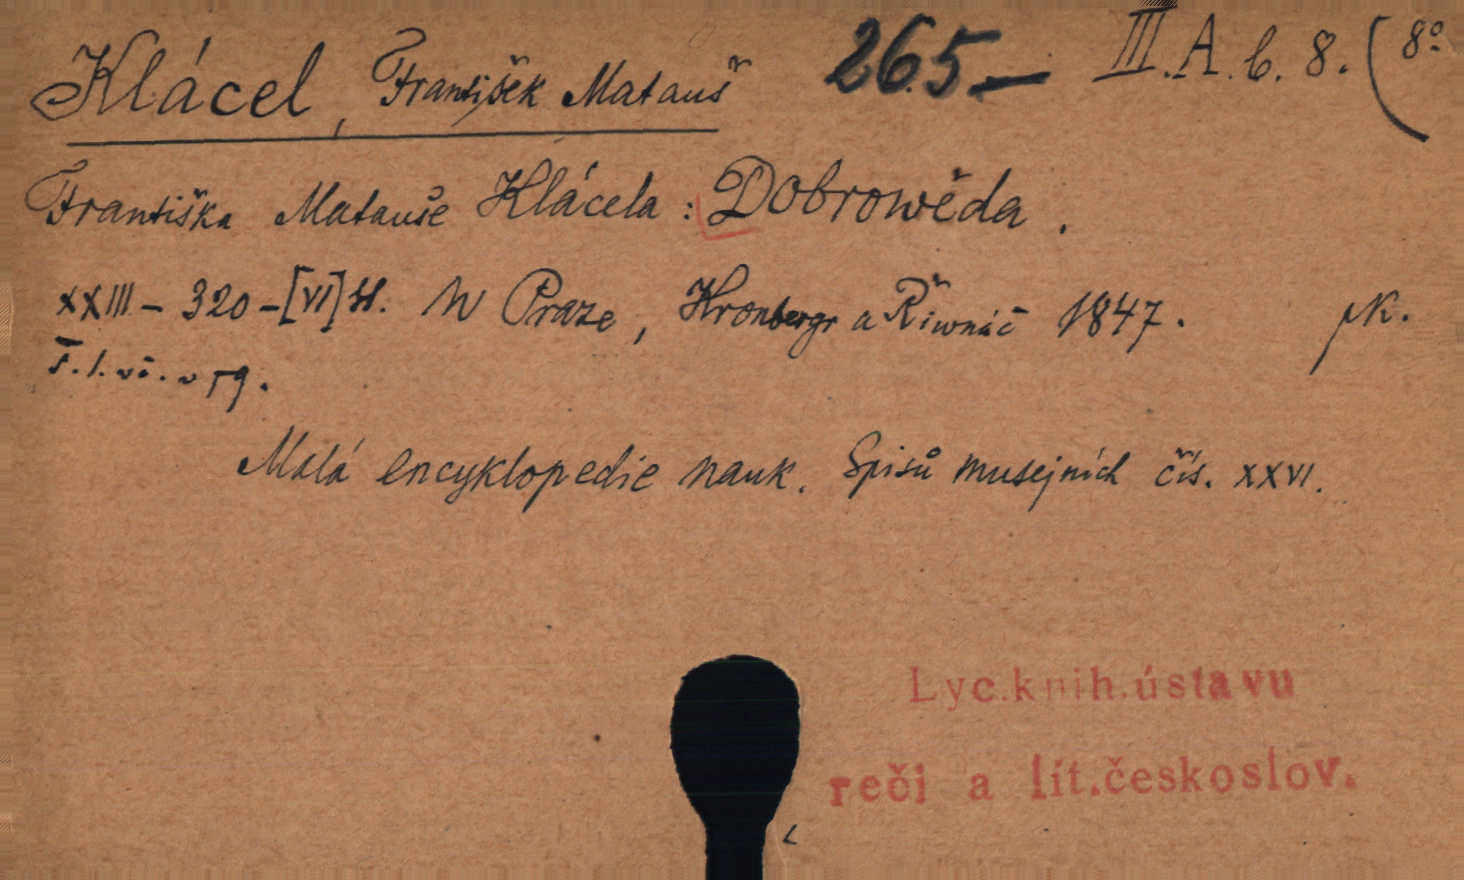 Klácel, František Matauš 265— III.A.b.8. (8°
Františka Matauše Klácela: Dobrowěda.
XXIII – 320 – [VI] W Praze, Kronbergr a Řiwnáč 1847.
Malá encyklopedie nauk. Spisů musejních čís. XXVI.
Lyc.knih.ústavu
reči a lit.českoslov.